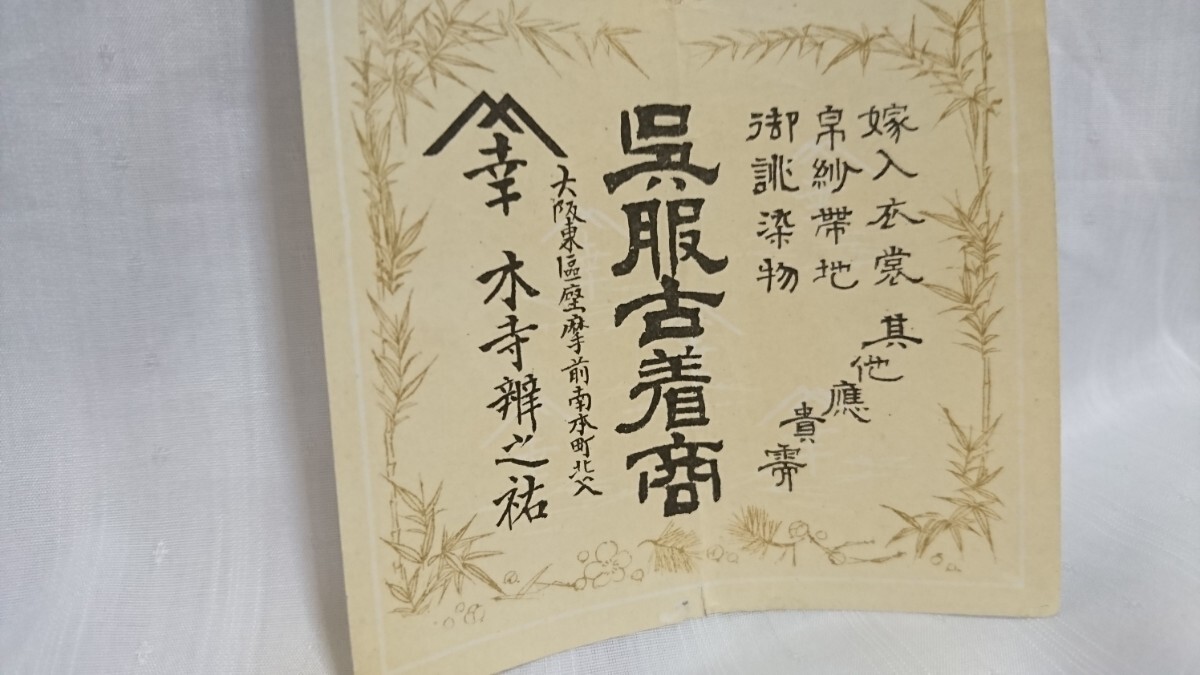 嫁入衣裳
帛紗帶地
御誂染物
其他應貴需
吳服古着商
大阪東區座摩前南本町北へ入
幸
木寺辨之祐